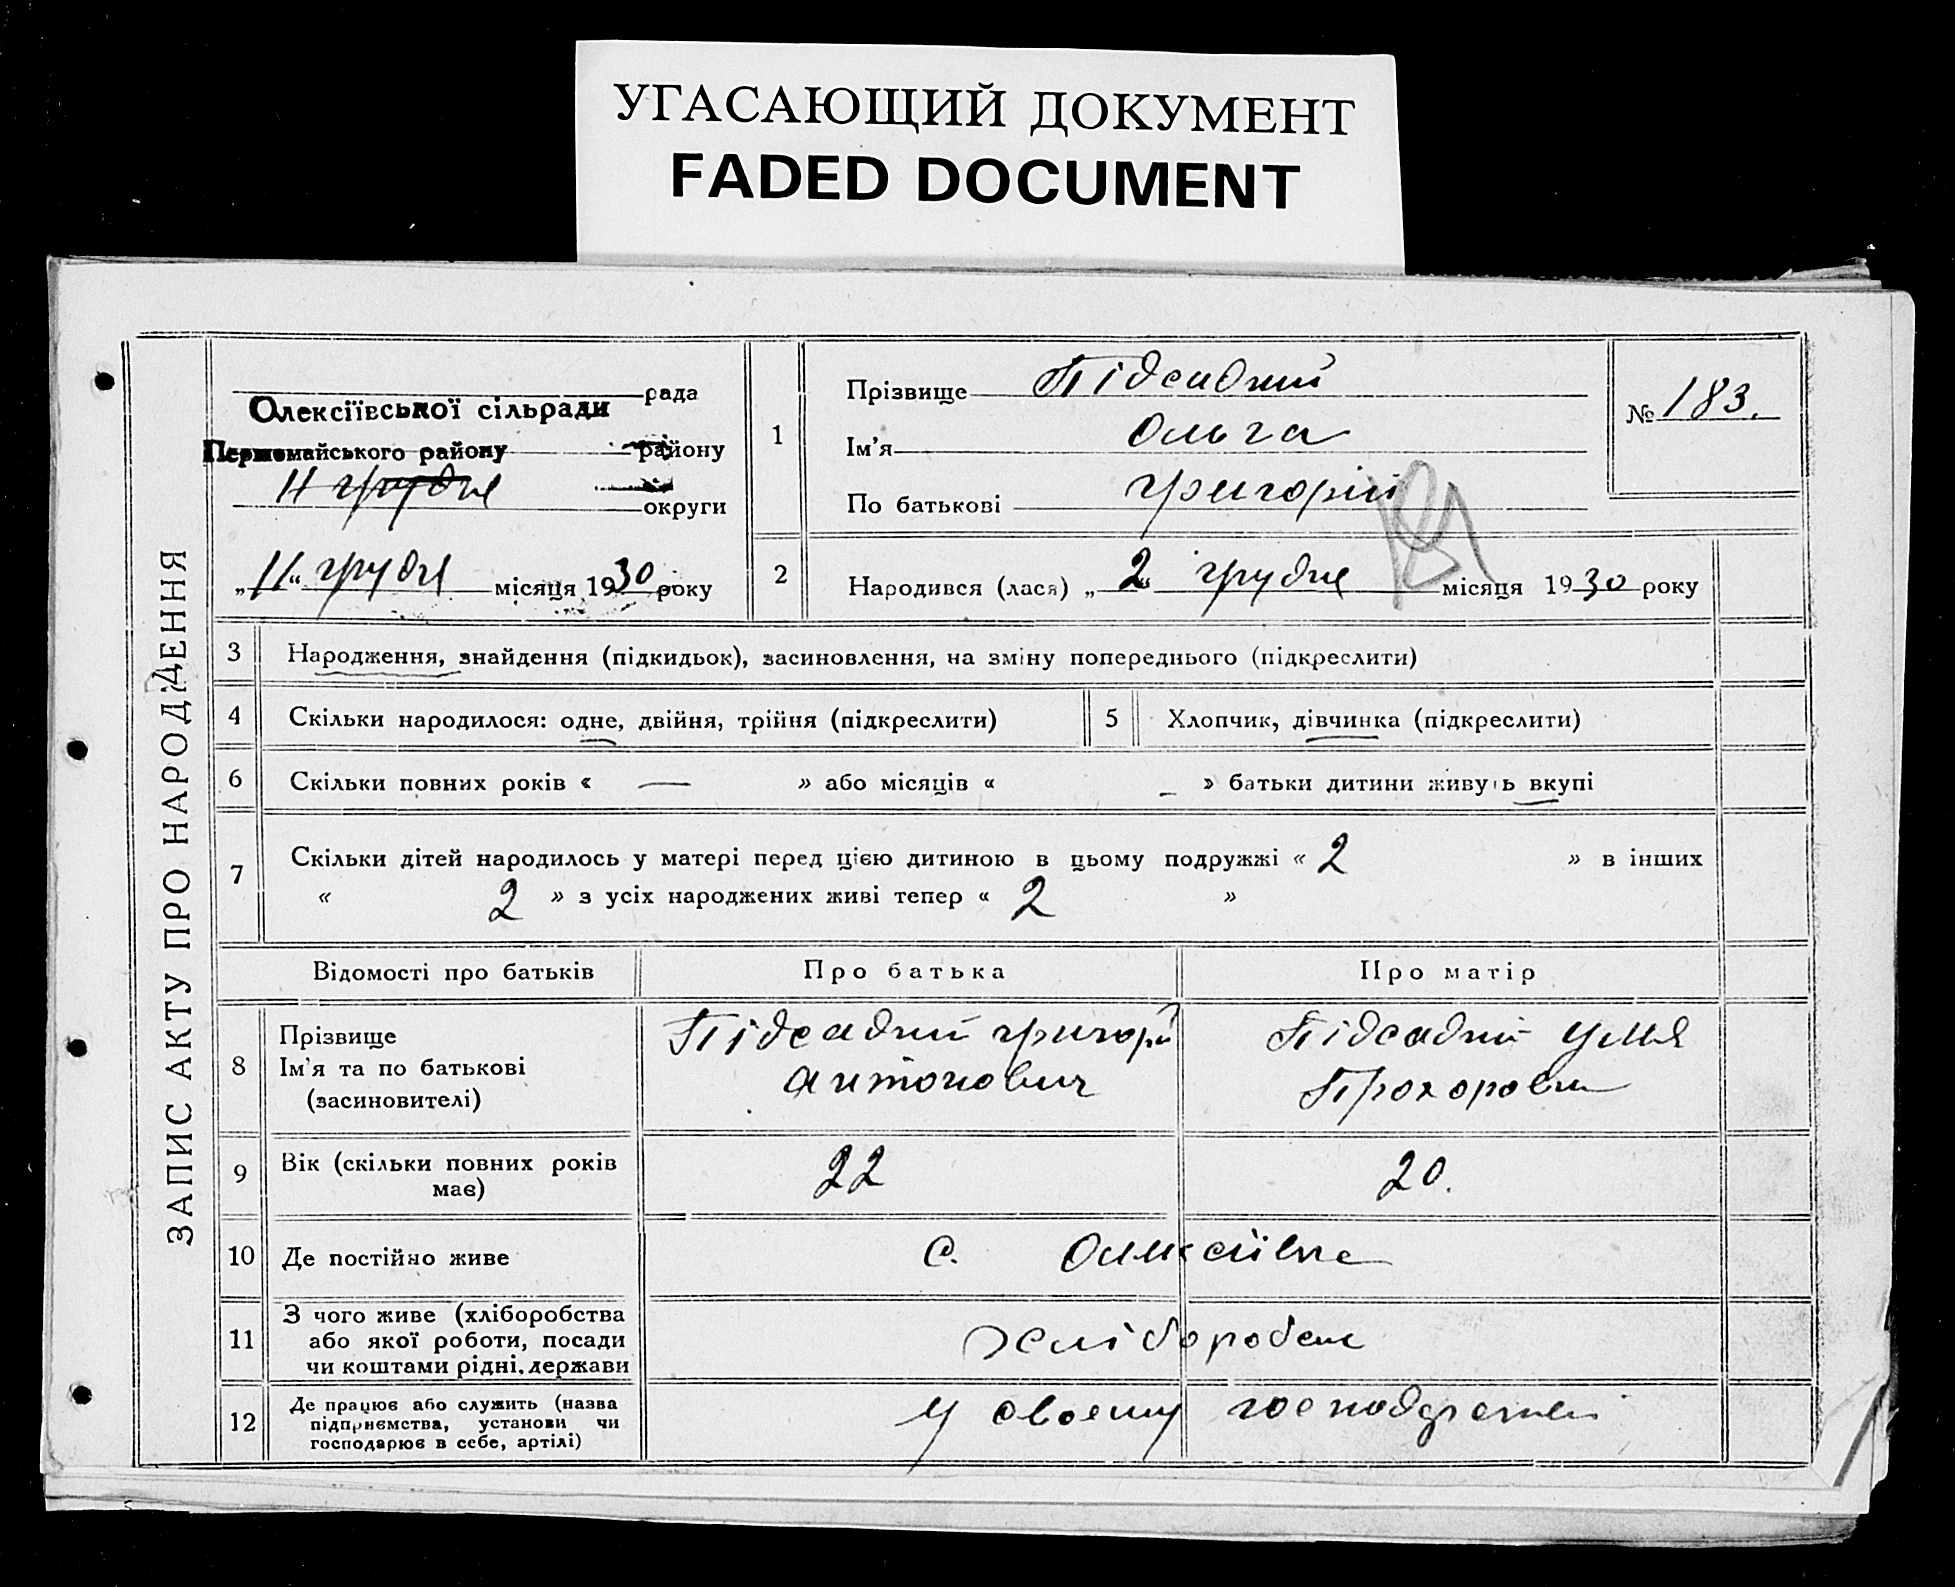 УГАСАЮЩИЙ ДОКУМЕНТ
FADED DOCUMENT
ЗАПИС АКТУ ПРО НАРОДЖЕННЯ
рада
Олексіївської сільради
Первомайського району району
11 грудня
округи
„11“ грудня місяця 1930 року
1
Прізвище Підсадний
Ім'я Ольга
По батькові Григорій
№ 183.
2
Народився (лася) „2“ грудня місяця 1930 року
3 Народження, знайдення (підкидьок), засиновлення, на зміну попереднього (підкреслити)
4 Скільки народилося: одне, двійня, трійня (підкреслити)
5 Хлопчик, дівчинка (підкреслити)
6 Скільки повних років « — » або місяців « – » батьки дитини живуть вкупі
7 Скільки дітей народилось у матері перед цією дитиною в цьому подружжі « 2 » в інших
« 2 » з усіх народжених живі тепер « 2 »
Відомості про батьків Про батька Про матір
8 Прізвище
Ім'я та по батькові
(засиновителі)
Підсадний Григорій
Антонович
Підсадний
9 Вік (скільки повних років
має)
22 20.
10 Де постійно живе с. Олексіївка
11 З чого живе (хліборобства
або якої роботи, посади
чи коштами рідні, держави
хліборобст
12 Де працює або служить (назва
підприємства, установи чи
господарює в себе, артілі)
У своєму